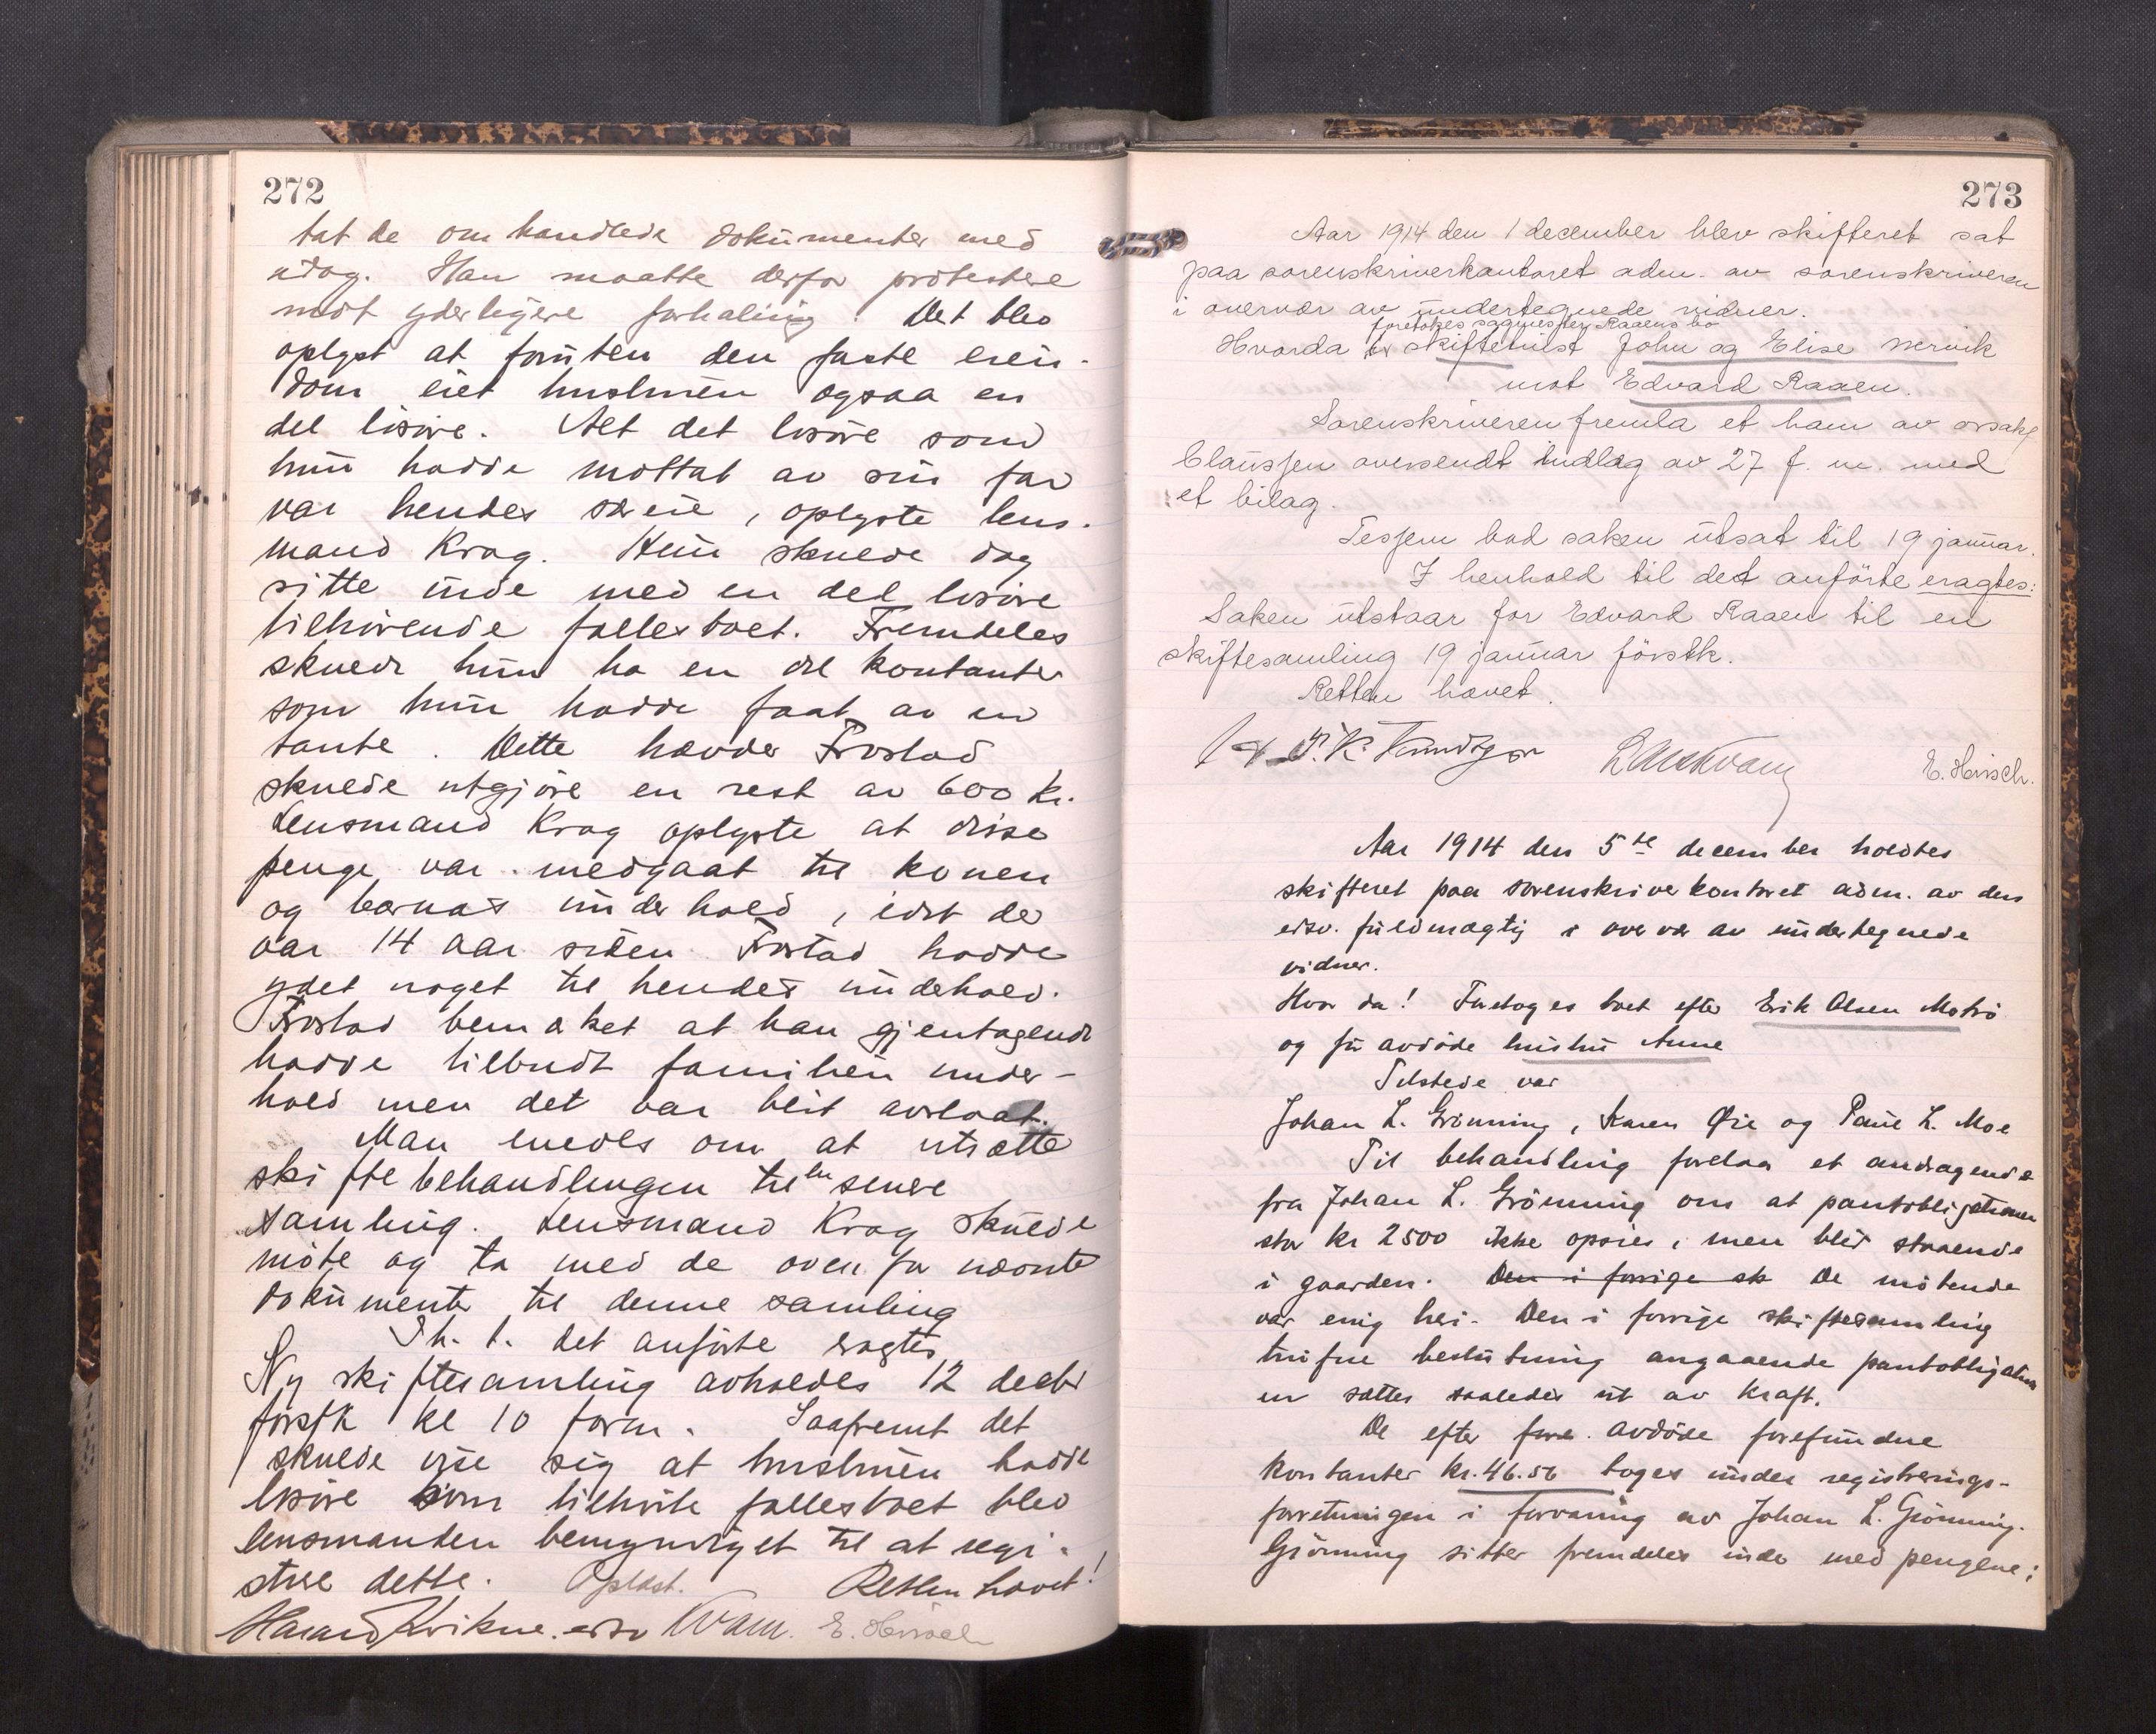 272
tat de omhandlede dokumenter med
idag. Han maatte derfor protestere
mot yderligere forhaling. Det blev
oplyst at foruten den faste eien-
dom eiet hustruen ogsaa en
del løsøre. Alt det løsøre som
hun hadde mottat av sin far
var hendes særeie, oplyste lens-
mand Krog. Hun skulde dog
sitte inde med en del løsøre
tilhørende fællesboet. Fremdeles
skulde hun ha en del kontanter
som hun hadde faat av en
tante. Dette hævder Frostad
skulde utgjøre en rest av 600 kr.
Lensmand Krog oplyste at disse
penge var medgaat til konen
og barnas underhold, idet de
var 14 aar siden Frostad hadde
ydet noget til hendes underhold.
Frostad bemerket at han gjentagende
hadde tilbudt familien under-
hold men det var blit avslaat.
Man enedes om at utsætte
skiftebehandlingen til en senere
samling. Lensmand Krog skulde
møte og ta med de ovenfor nævnte
dokumenter til denne samling
I h. t. det anførte eragtes
Ny skiftesamling avholdes 12 decbr
førstk kl 10 form. Saafremt det
skulde vise sig at hustruen hadde
løsøre som tilhørte fællesboet blev
lensmanden bemyndiget til at regi-
strere dette. Oplæst. Retten hævet!
Harald Kvikne. edsv Kvam. E. Hirsch
273
Aar 1914 den 1 december blev skifteret sat
paa sorenskriverkontoret adm. av sorenskriveren
i overvær av undertegnede vidner.
foretokes sagvester Raaens bo
Hvorda skiftetvist John og Elise Mervik
mot Edvard Raaen.
Sorenskriveren fremla et ham av orsakf
Claussen oversendt indlæg av 27 f. m. med
et bilag.
Tessem bad saken utsat til 19 januar.
I henhold til det anførte eragtes:
Saken utstaar for Edvard Raaen til en
skiftesamling 19 januar førstk.
Retten hævet.
E. Hirsch.
Aar 1914 den 5te december holdtes
skifteret paa sorenskriverkontoret adm. av den
edsv. fuldmægtig i overvær av undertegnede
vidner.
Hvor da! Foretoges boet efter Erik Olsen Motrø
og før avdøde hustru Anne
Tilstede var
Johan L. Grønning, Karen Øie og Paul L. Moe
Til behandling forelaa et andragende
fra Johan L. Grønning om at pantobligationen
stor kr 2500 ikke opsies, men blir staaende
i gaarden. Den i forrige sk De møtende
var enig heri. Den i forrige skiftesamling
trufne beslutning angaaende pantobligation
en sættes saaledes ut av kraft.
De efter før avdøde forefundne
kontanter kr. 46.56 toges under registrerings-
forretningen i forvaring av Johan L. Grønning.
Grønning sitter fremdeles inde med pengene;